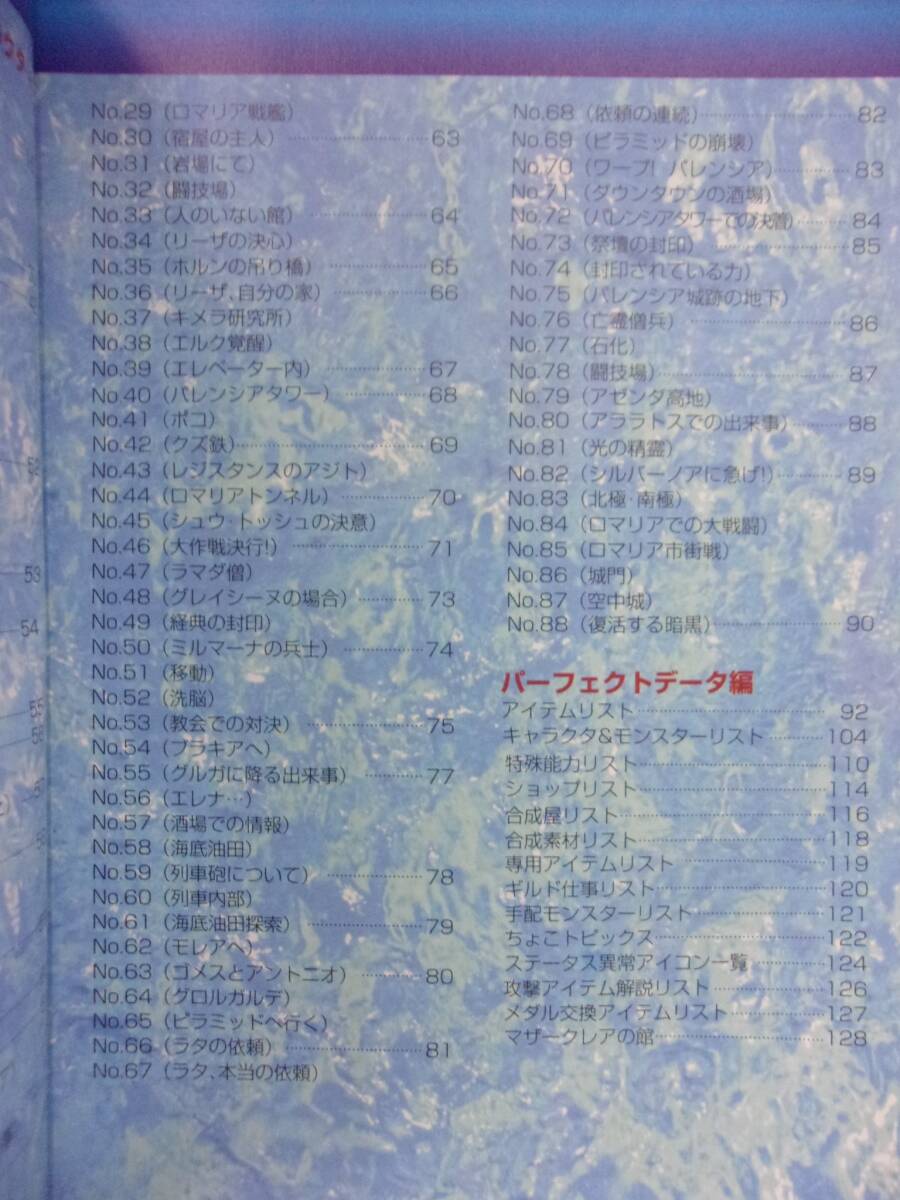 No.29（ロマリア戦艦）
No.30（宿屋の主人）…………63
No.31（岩場にて）
No.32（闘技場）
No.33（人のいない館）…………64
No.34（リーザの決心）
No.35（ホルンの吊り橋）…………65
No.36（リーザ、自分の家）…………66
No.37（キメラ研究所）
No.38（エルク覚醒）
No.39（エレベーター内）…………67
No.40（パレンシアタワー）…………68
No.41（ポコ）
No.42（クズ鉄）…………69
No.43（レジスタンスのアジト）
No.44（ロマリアトンネル）…………70
No.45（シュウ・トッシュの決意）
No.46（大作戦決行!）…………71
No.47（ラマダ僧）
No.48（グレイシーヌの場合）…………73
No.49（経典の封印）
No.50（ミルマーナの兵士）…………74
No.51（移動）
No.52（洗脳）
No.53（教会での対決）…………75
No.54（ブラキアへ）
No.55（グルガに降る出来事）…………77
No.56（エレナ…）
No.57（酒場での情報）
No.58（海底油田）
No.59（列車砲について）…………78
No.60（列車内部）
No.61（海底油田探索）…………79
No.62（モレアへ）
No.63（ゴメスとアントニオ）…………80
No.64（グロルガルデ）
No.65（ピラミッドへ行く）
No.66（ラタの依頼）…………81
No.67（ラタ、本当の依頼）
No.68（依頼の連続）…………82
No.69（ピラミッドの崩壊）
No.70（ワープ! パレンシア）…………83
No.71（ダウンタウンの酒場）
No.72（パレンシアタワーでの決着）…………84
No.73（祭壇の封印）…………85
No.74（封印されている力）
No.75（パレンシア城跡の地下）
No.76（亡霊僧兵）…………86
No.77（石化）
No.78（闘技場）…………87
No.79（アゼンダ高地）
No.80（アララトスでの出来事）…………88
No.81（光の精霊）
No.82（シルバーノアに急げ!）…………89
No.83（北極・南極）
No.84（ロマリアでの大戦闘）
No.85（ロマリア市街戦）
No.86（城門）
No.87（空中城）
No.88（復活する暗黒）…………90
パーフェクトデータ編
アイテムリスト…………92
キャラクタ&モンスターリスト…………104
特殊能力リスト…………110
ショップリスト…………114
合成屋リスト…………116
合成素材リスト…………118
専用アイテムリスト…………119
ギルド仕事リスト…………120
手配モンスターリスト…………121
ちょこトピックス…………122
ステータス異常アイコン一覧…………124
攻撃アイテム解説リスト…………126
メダル交換アイテムリスト…………127
マザークレアの館…………128
52
53
54
55